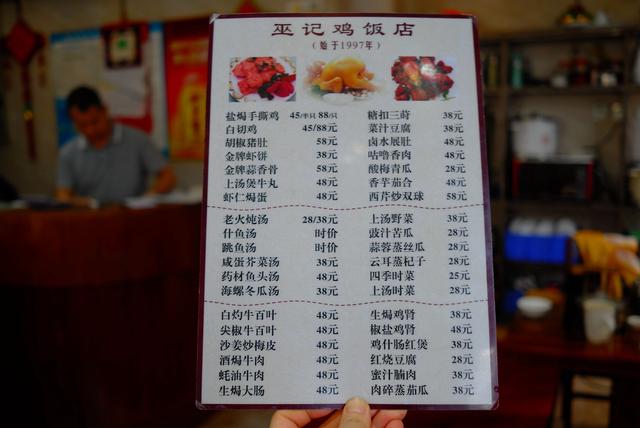 巫记鸡饭店
（始于1997年）
盐焗手撕鸡 45/半只 88/只
白切鸡 45/88元
胡椒猪肚 58元
金牌虾饼 38元
金牌蒜香骨 58元
上汤煲牛丸 48元
虾仁焗蛋 48元
糖扣三莳 38元
菜汁豆腐 38元
卤水展肚 48元
咕噜香肉 48元
酸梅青瓜 28元
香芋茄合 48元
西芹炒双球 58元
老火炖汤 28/38元
什鱼汤 时价
跳鱼汤 时价
咸蛋芥菜汤 38元
药材鱼头汤 48元
海螺冬瓜汤 38元
上汤野菜 38元
豉汁苦瓜 28元
蒜蓉蒸丝瓜 28元
云耳蒸杞子 28元
四季时菜 25元
上汤时菜 28元
白灼牛百叶 48元
尖椒牛百叶 48元
沙姜炒梅皮 48元
酒焗牛肉 48元
蚝油牛肉 48元
生焗大肠 48元
生焗鸡肾 38元
椒盐鸡肾 48元
鸡什肠红煲 38元
红烧豆腐 28元
蜜汁腩肉 38元
肉碎蒸茄瓜 38元